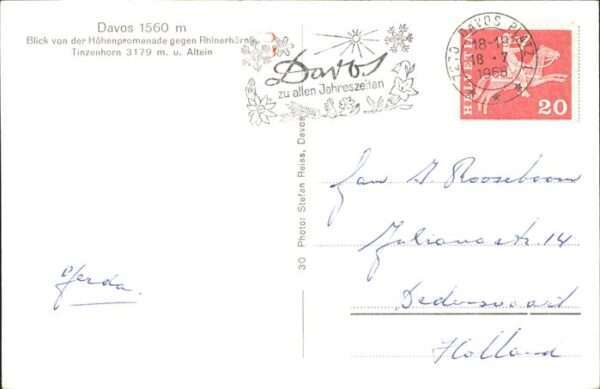 Davos 1560 m
Blick von der Höhenpromenade gegen Rhinerhörnli
Tinzenhorn 3179 m. u. Altein
Davos
zu allen Jahreszeiten
7270 DAVOS PLATZ 1
18-19
18.-7
1968
HELVETIA
20
30 Photor Stefan Reiss, Davos
Gerda.
Fam J. Rooseboom
Julianastr. 14
Dedemsvaart
Holland